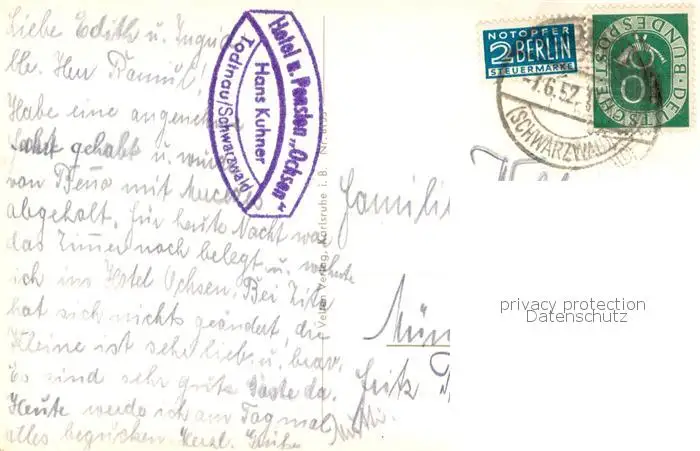 Liebe Edith u. Ingrid
Habe eine angenehme
Fahrt gehabt u. wurde
von Benno mit
abgeholt. Für heute Nacht war
das Zimmer noch belegt u. wohnte
ich im Hotel Ochsen. Bei
hat sich nichts geändert, die
Kleine ist sehr lieb u. brav.
Es sind sehr gute Gäste da.
Heute werde ich am Tag mal
alles begucken. Herzl. Grüße
Hotel u. Pension „Ochsen"
Hans Kuhner
Todtnau/Schwarzwald
Velten Verlag, Karlsruhe i. B.
NOTOPFER
2 BERLIN
STEUERMARKE
DEUTSCHE BUNDESPOST
10
-7.6.52
(SCHWARZWALD)
Familie
Mün
Fritz
privacy protection
Datenschutz